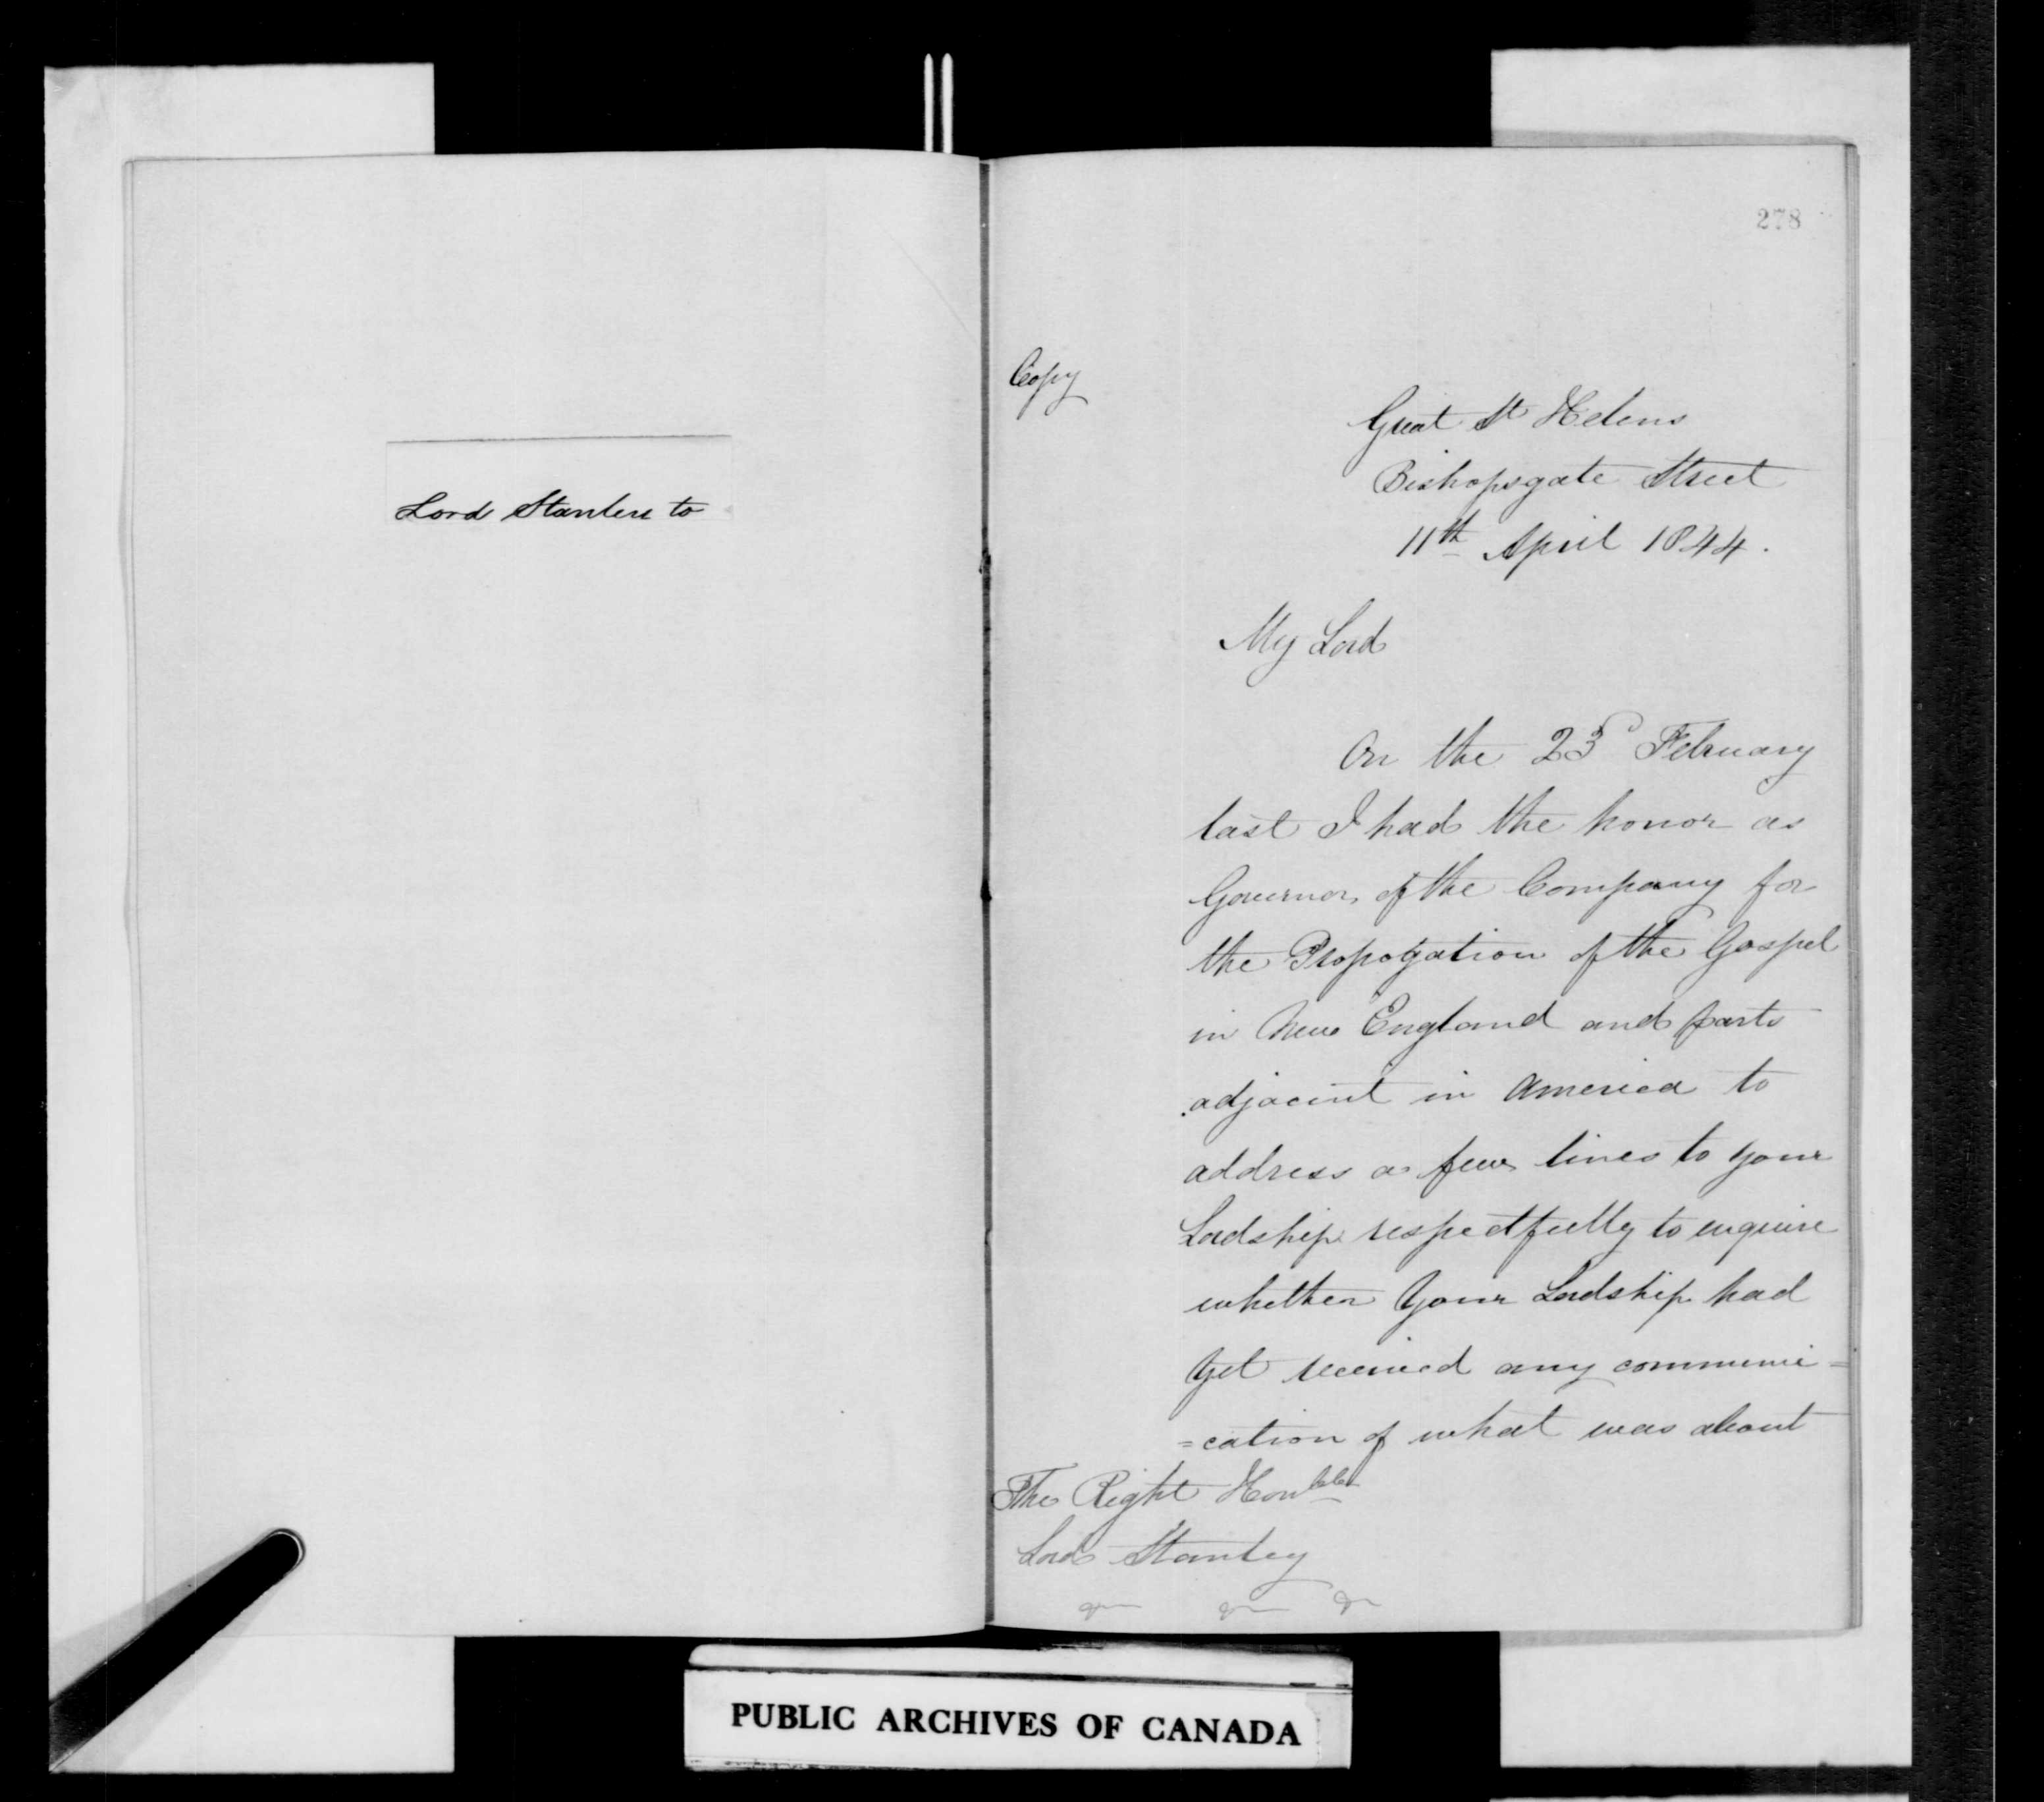 Lord Stanley to
278
Copy
Great St Helens
Bishopsgate Street
11th April 1844.
My Lord
On the 23d February
last I had the honor as
Governor of the Company for
the Propogation of the Gospel
in New England and parts
adjacent in America to
address a few lines to your
Lordship respectfully to enquire
whether Your Lordship had
Yet received any communi=
=cation of what was about
The Right Honble
Lord Stanley
PUBLIC ARCHIVES OF CANADA